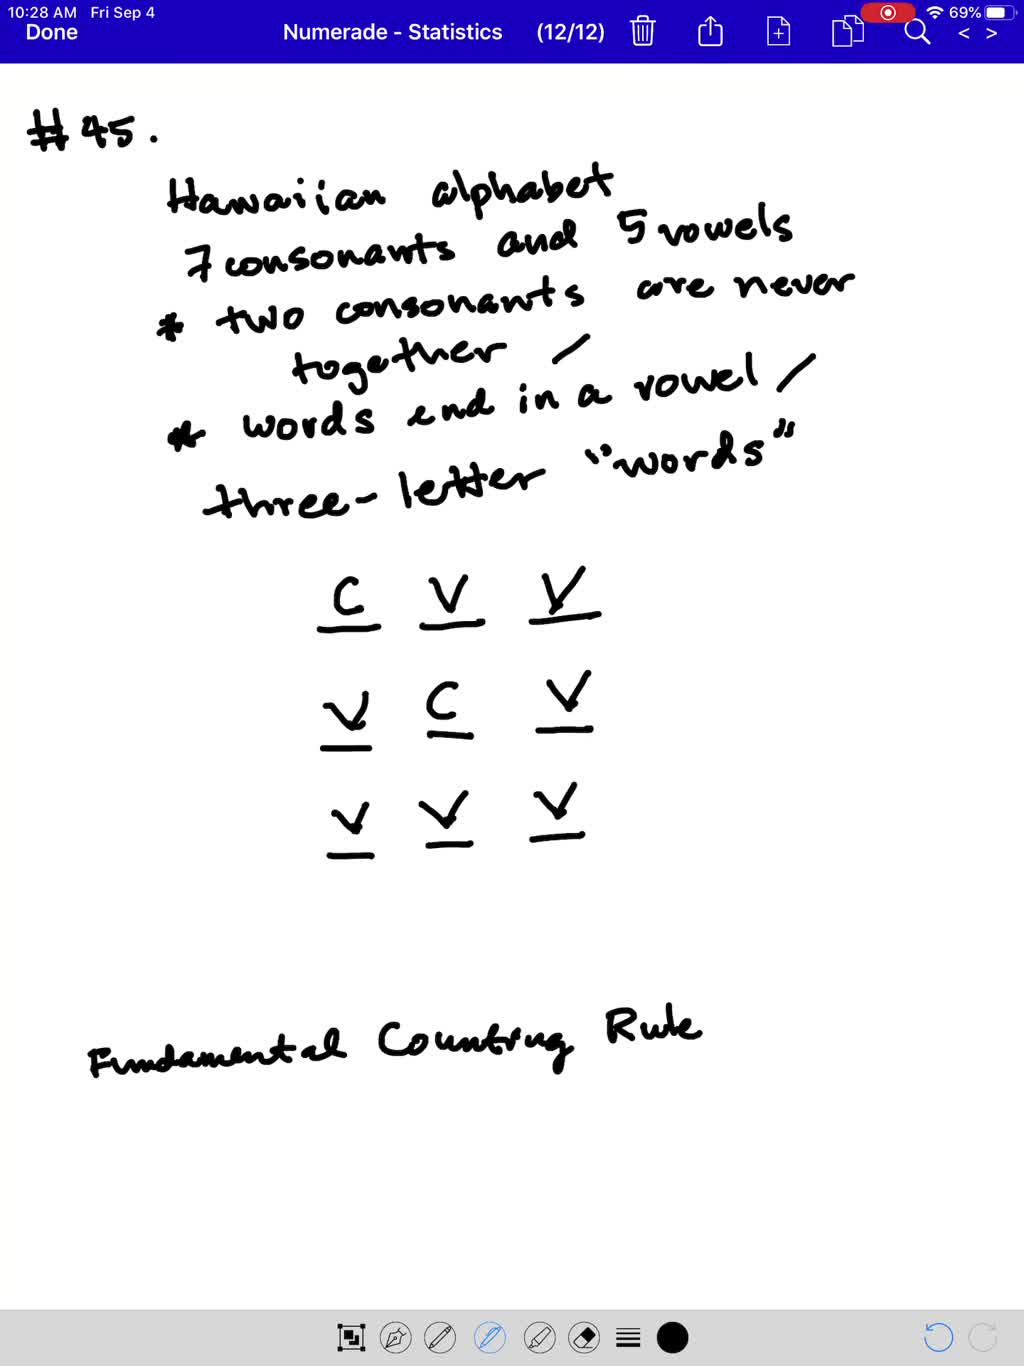 10:28 AM Fri Sep 4 69%
Done Numerade - Statistics (12/12) < >
#45.
Hawaiian alphabet
7 consonants and 5 vowels
* two consonants are never
together /
* words end in a vowel /
three-letter "words"
C V V
V C V
V V V
Fundamental Counting Rule